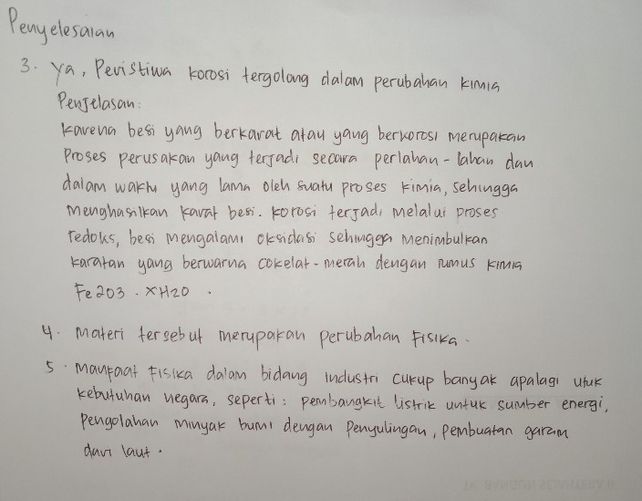 Penyelesaian
3. Ya, Peristiwa korosi tergolong dalam perubahan kimia
Penjelasan:
Karena besi yang berkarat atau yang berkorosi merupakan
Proses perusakan yang terjadi secara perlahan-lahan dan
dalam waktu yang lama oleh suatu proses kimia, sehingga
menghasilkan karat besi. korosi terjadi melalui proses
redoks, besi mengalami oksidasi sehingga menimbulkan
karatan yang berwarna cokelat-merah dengan rumus kimia
Fe2O3 . XH2O .
4. Materi tersebut merupakan perubahan Fisika.
5. Manfaat Fisika dalam bidang industri cukup banyak apalagi utuk
kebutuhan negara, seperti : pembangkit listrik untuk sumber energi,
pengolahan minyak bumi dengan penyulingan, pembuatan garam
dari laut.